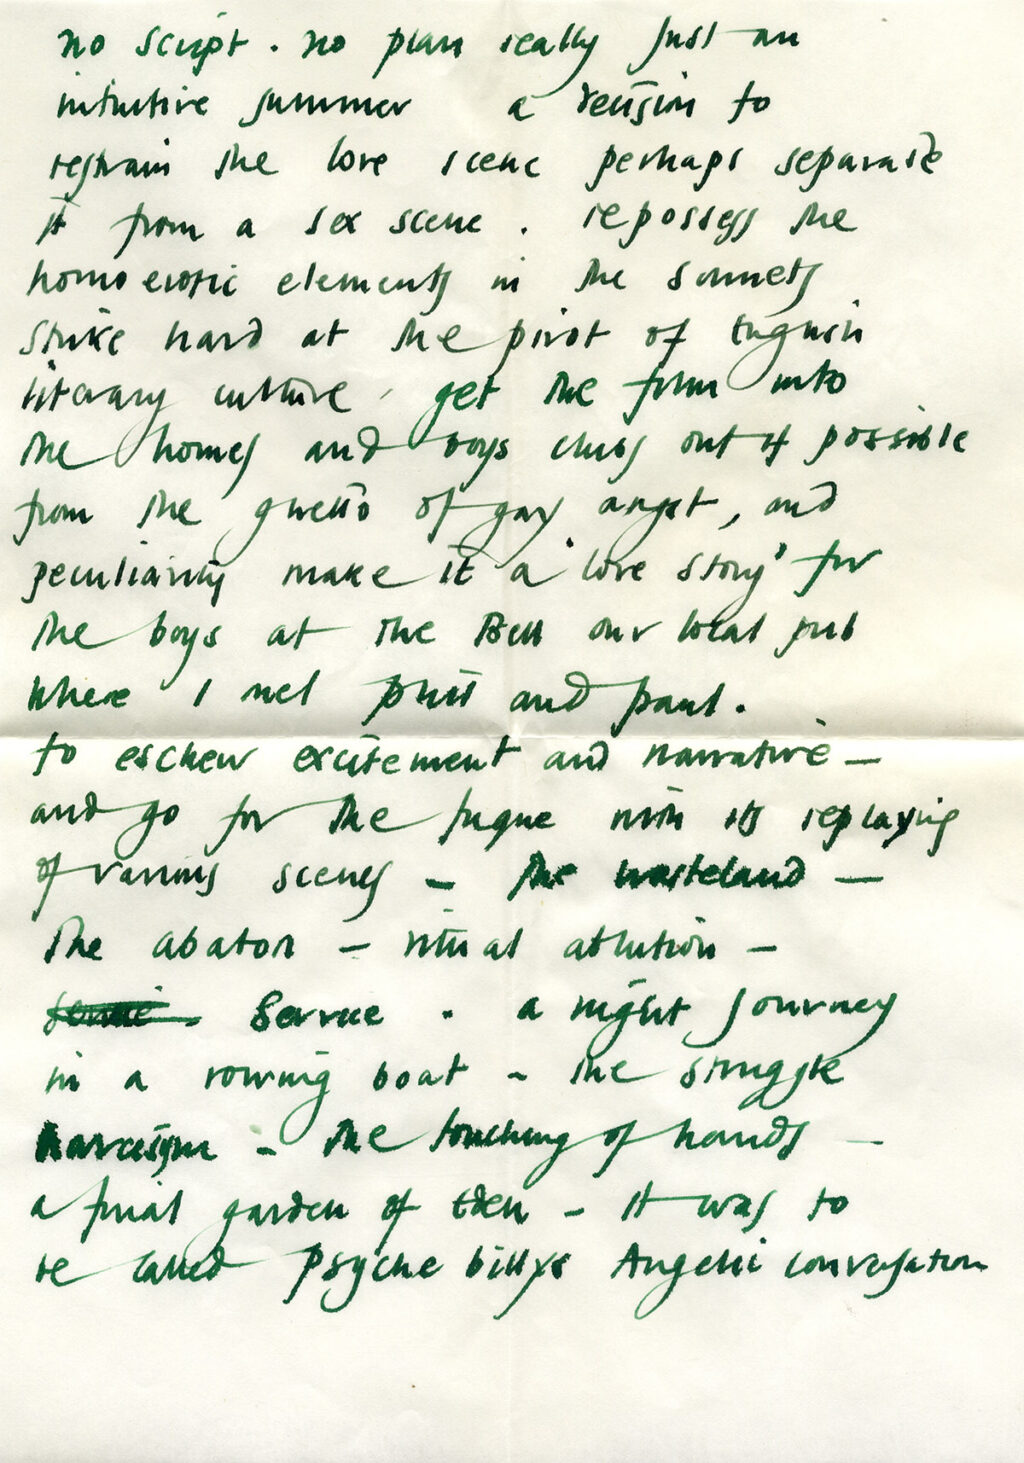 no script . no plan really just an
intuitive summer a decision to
restrain the love scene perhaps separate
it from a sex scene . repossess the
homoerotic elements in the sonnets
strike hard at the pivot of English
literary culture , get the film into
the homes and boys clubs out if possible
from the ghetto of gay angst , and
peculiarity make it a 'love story' for
the boys at the Bell our local pub
where I met phill and paul .
to eschew excitement and narrative —
and go for the fugue with its replaying
of various scenes — the wasteland —
The abaton — ritual ablution —
Service . a night journey
in a rowing boat - the struggle
narcisism - the touching of hands —
a final garden of Eden - it was to
be called Psyche billys Angelic conversation